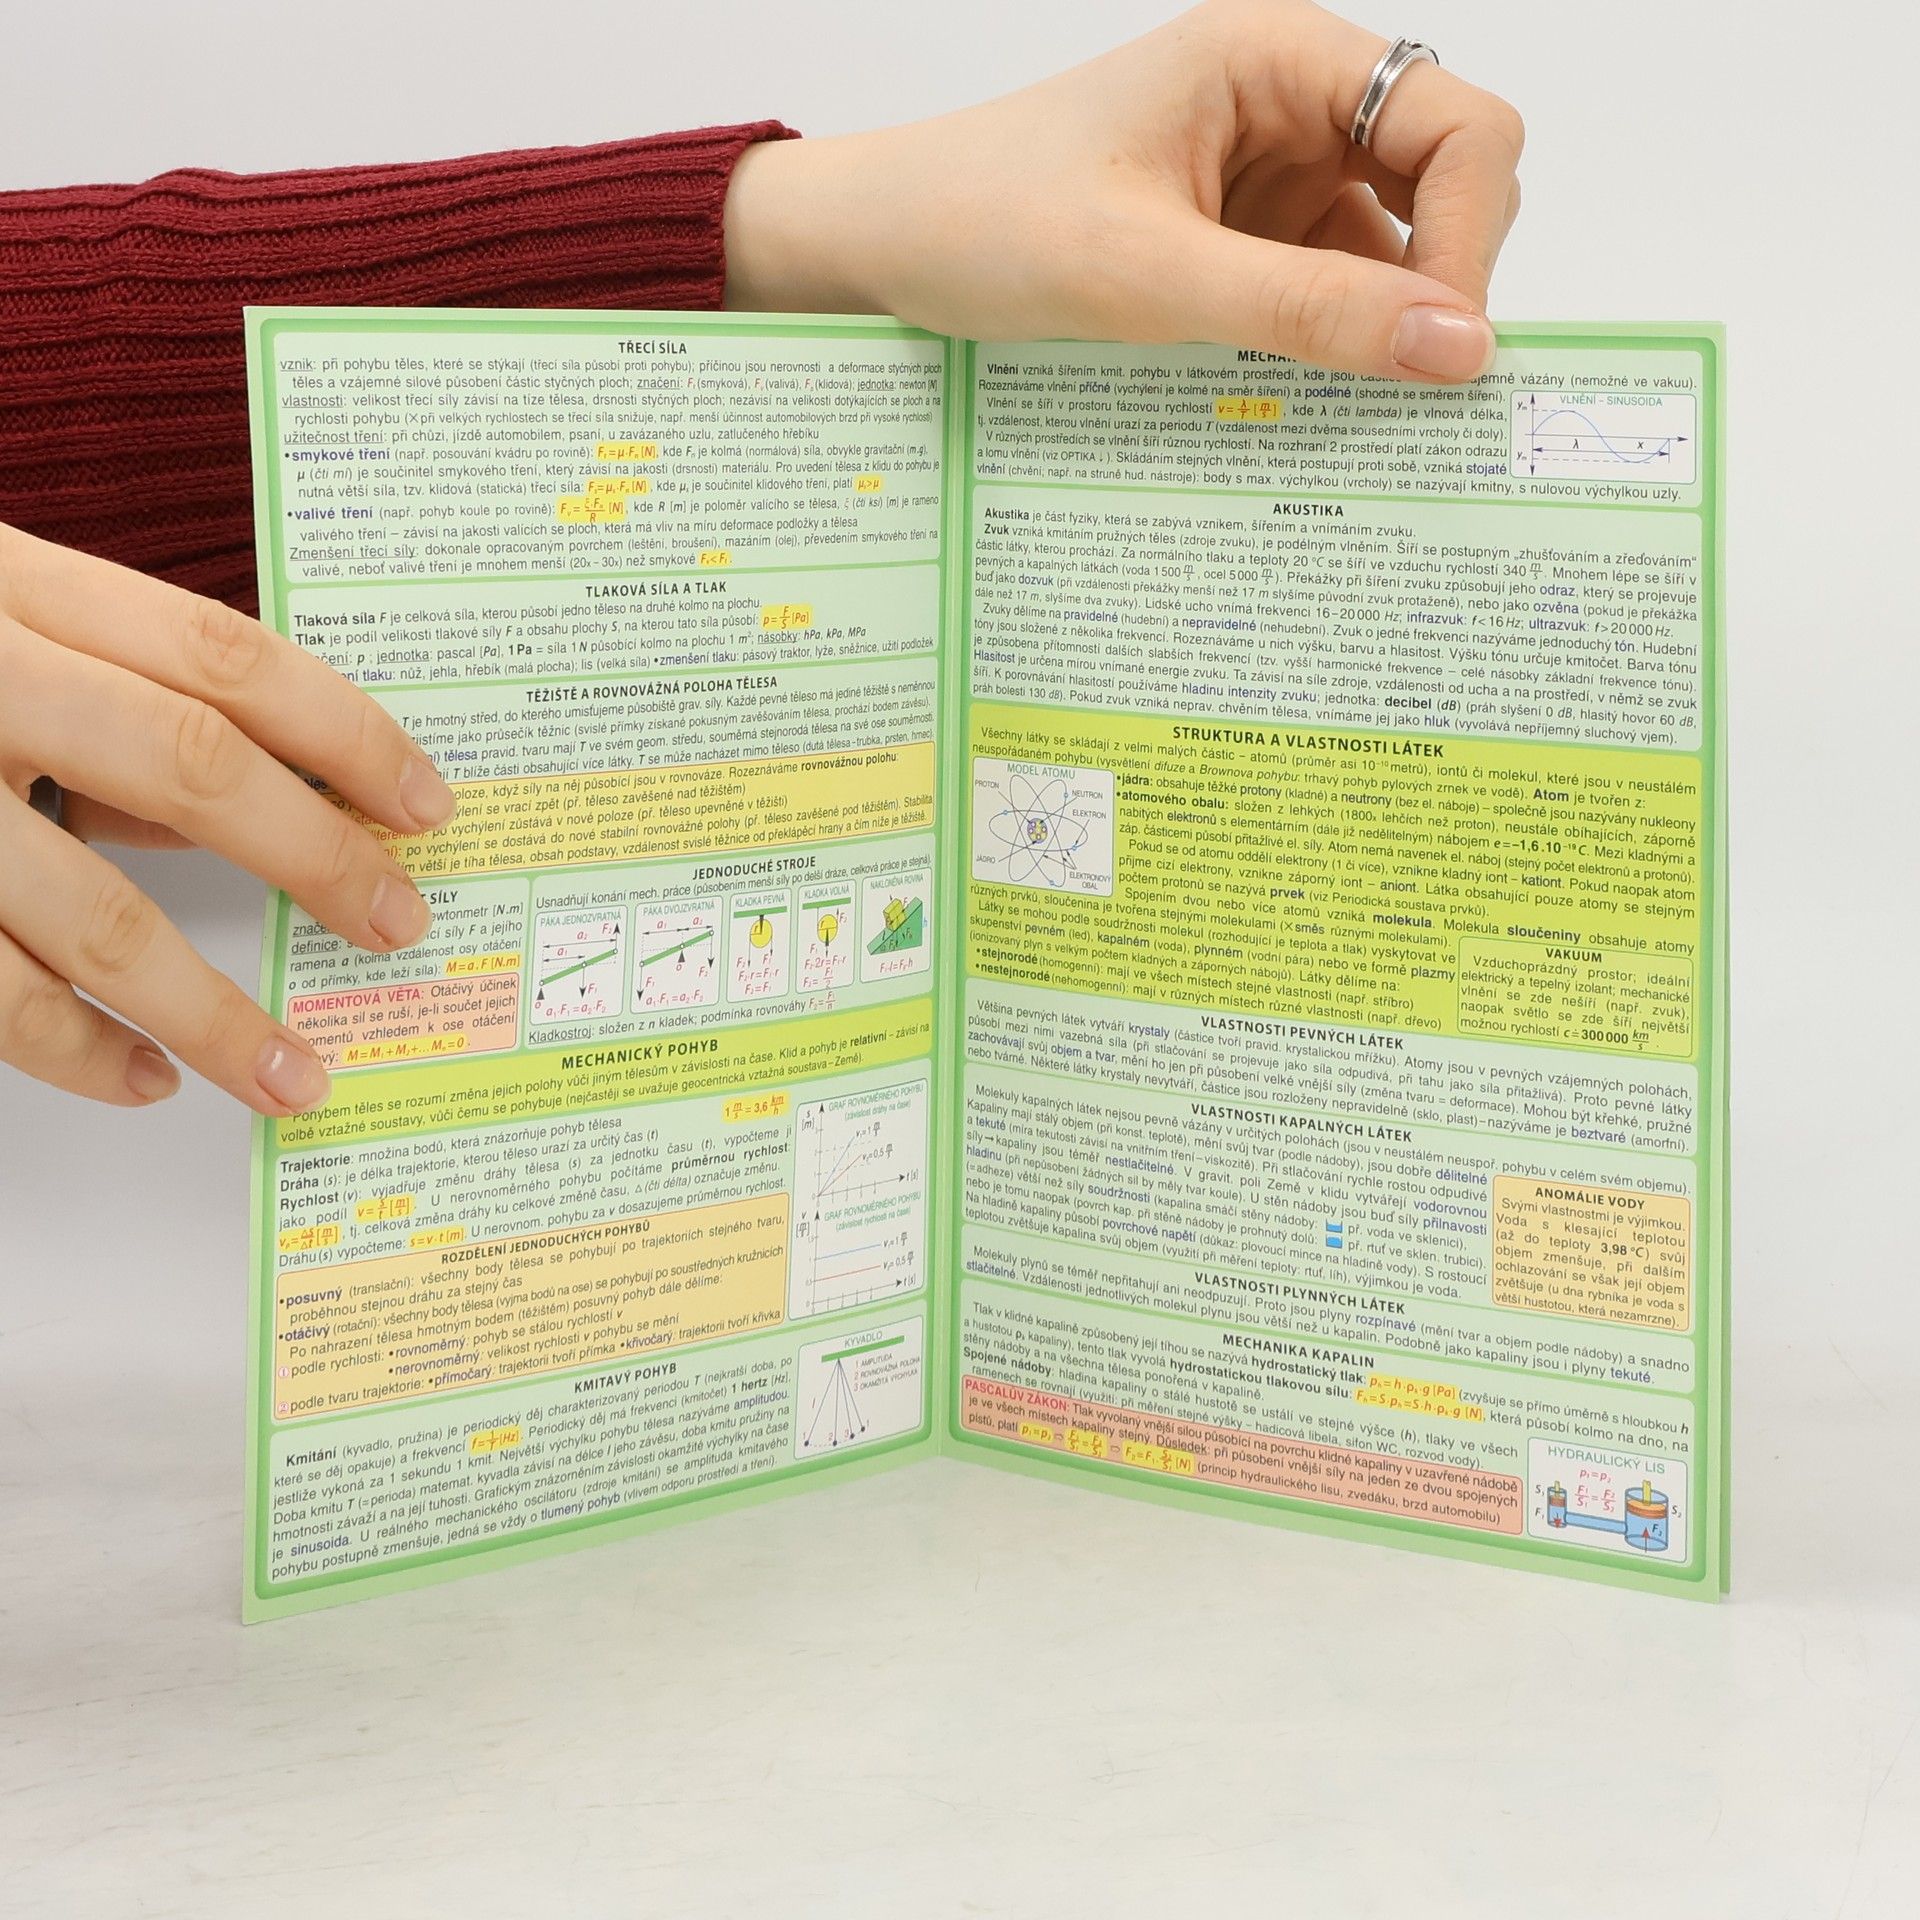 TŘECÍ SÍLA
vznik: při pohybu těles, které se stýkají (třecí síla působí proti pohybu); příčinou jsou nerovnosti a deformace styčných ploch
těles a vzájemné silové působení částic styčných ploch; značení: Fₜ (smyková), Fᵥ (valivá), Fₛ (klidová); jednotka: newton [N]
vlastnosti: velikost třecí síly závisí na tíze tělesa, drsnosti styčných ploch; nezávisí na velikosti dotýkajících se ploch a na
rychlosti pohybu (× při velkých rychlostech se třecí síla snižuje, např. menší účinnost automobilových brzd při vysoké rychlosti)
užitečnost tření: při chůzi, jízdě automobilem, psaní, u zavázaného uzlu, zatlučeného hřebíku
• smykové tření (např. posouvání kvádru po rovině): Fₜ=μ·Fₙ [N], kde Fₙ je kolmá (normálová) síla, obvykle gravitační (m.g).
μ (čti mí) je součinitel smykového tření, který závisí na jakosti (drsnosti) materiálu. Pro uvedení tělesa z klidu do pohybu je
nutná větší síla, tzv. klidová (statická) třecí síla: Fₛ=μₛ·Fₙ [N], kde μₛ je součinitel klidového tření, platí μₛ>μ
• valivé tření (např. pohyb koule po rovině): Fᵥ = ξ·Fₙ/R [N], kde R [m] je poloměr valícího se tělesa, ξ (čti ksí) [m] je rameno
valivého tření – závisí na jakosti valících se ploch, která má vliv na míru deformace podložky a tělesa
Zmenšení třecí síly: dokonale opracovaným povrchem (leštění, broušení), mazáním (olej), převedením smykového tření na
valivé, neboť valivé tření je mnohem menší (20x – 30x) než smykové Fᵥ<Fₜ.
TLAKOVÁ SÍLA A TLAK
Tlaková síla F je celková síla, kterou působí jedno těleso na druhé kolmo na plochu.
Tlak je podíl velikosti tlakové síly F a obsahu plochy S, na kterou tato síla působí: p=F/S [Pa]
čení: p ; jednotka: pascal [Pa], 1 Pa = síla 1 N působící kolmo na plochu 1 m²; násobky: hPa, kPa, MPa
ní tlaku: nůž, jehla, hřebík (malá plocha); lis (velká síla) • zmenšení tlaku: pásový traktor, lyže, sněžnice, užití podložek
TĚŽIŠTĚ A ROVNOVÁŽNÁ POLOHA TĚLESA
T je hmotný střed, do kterého umisťujeme působiště grav. síly. Každé pevné těleso má jediné těžiště s neměnnou
jistíme jako průsečík těžnic (svislé přímky získané pokusným zavěšováním tělesa, prochází bodem závěsu).
ní) tělesa pravid. tvaru mají T ve svém geom. středu, souměrná stejnorodá tělesa na své ose souměrnosti.
ají T blíže části obsahující více látky. T se může nacházet mimo těleso (dutá tělesa - trubka, prsten, hrnec).
poloze, když síly na něj působící jsou v rovnováze. Rozeznáváme rovnovážnou polohu:
ýlení se vrací zpět (př. těleso zavěšené nad těžištěm)
po vychýlení zůstává v nové poloze (př. těleso upevněné v těžišti)
ní): po vychýlení se dostává do nové stabilní rovnovážné polohy (př. těleso zavěšené pod těžištěm). Stabilita
ím větší je tíha tělesa, obsah podstavy, vzdálenost svislé těžnice od překlápěcí hrany a čím níže je těžiště.
T SÍLY
ewtonmetr [N.m]
definice:
cí síly F a jejího
ramena a (kolmá vzdálenost osy otáčení
o od přímky, kde leží síla): M=a.F [N.m]
MOMENTOVÁ VĚTA: Otáčivý účinek
několika sil se ruší, je-li součet jejich
omentů vzhledem k ose otáčení
vý: M=M₁+M₂+...Mₙ=0 .
JEDNODUCHÉ STROJE
Usnadňují konání mech. práce (působením menší síly po delší dráze, celková práce je stejná).
PÁKA JEDNOZVRATNÁ
a₂ F₂
a₁
o F₁
a₁·F₁=a₂·F₂
PÁKA DVOJZVRATNÁ
a₁ a₂
F₁ o F₂
a₁·F₁=a₂·F₂
KLADKA PEVNÁ
F₂ F₁
F₂·r=F₁·r
F₂=F₁
KLADKA VOLNÁ
F₂
F₁
F₂·2r=F₁·r
F₂=F₁/2
NAKLONĚNÁ ROVINA
F₁·l=F₂·h
Kladkostroj: složen z n kladek; podmínka rovnováhy F₂=F₁/n
MECHANICKÝ POHYB
Pohybem těles se rozumí změna jejich polohy vůči jiným tělesům v závislosti na čase. Klid a pohyb je relativní – závisí na
volbě vztažné soustavy, vůči čemu se pohybuje (nejčastěji se uvažuje geocentrická vztažná soustava – Země).
Trajektorie: množina bodů, která znázorňuje pohyb tělesa
1 m/s = 3,6 km/h
Dráha (s): je délka trajektorie, kterou těleso urazí za určitý čas (t)
Rychlost (v): vyjadřuje změnu dráhy tělesa (s) za jednotku času (t), vypočteme ji
jako podíl v=s/t [m/s]. U nerovnoměrného pohybu počítáme průměrnou rychlost:
vₚ=Δs/Δt [m/s], tj. celková změna dráhy ku celkové změně času, Δ (čti délta) označuje změnu.
Dráhu (s) vypočteme: s=v·t [m]. U nerovnom. pohybu za v dosazujeme průměrnou rychlost.
GRAF ROVNOMĚRNÉHO POHYBU
(závislost dráhy na čase)
s [m]
v=1 m/s
v=0,5 m/s
t [s]
GRAF ROVNOMĚRNÉHO POHYBU
(závislost rychlosti na čase)
v [m/s]
v=1 m/s
v=0,5 m/s
t [s]
ROZDĚLENÍ JEDNODUCHÝCH POHYBŮ
• posuvný (translační): všechny body tělesa se pohybují po trajektoriích stejného tvaru,
proběhnou stejnou dráhu za stejný čas
• otáčivý (rotační): všechny body tělesa (vyjma bodů na ose) se pohybují po soustředných kružnicích
Po nahrazení tělesa hmotným bodem (těžištěm) posuvný pohyb dále dělíme:
① podle rychlosti: • rovnoměrný: pohyb se stálou rychlostí v
• nerovnoměrný: velikost rychlosti v pohybu se mění
② podle tvaru trajektorie: • přímočarý: trajektorií tvoří přímka • křivočarý: trajektorii tvoří křivka
KMITAVÝ POHYB
Kmitání (kyvadlo, pružina) je periodický děj charakterizovaný periodou T (nejkratší doba, po
které se děj opakuje) a frekvencí f=1/T [Hz]. Periodický děj má frekvenci (kmitočet) 1 hertz [Hz],
jestliže vykoná za 1 sekundu 1 kmit. Největší výchylku pohybu tělesa nazýváme amplitudou.
Doba kmitu T (=perioda) matemat. kyvadla závisí na délce l jeho závěsu, doba kmitu pružiny na
hmotnosti závaží a na její tuhosti. Grafickým znázorněním závislosti okamžité výchylky na čase
je sinusoida. U reálného mechanického oscilátoru (zdroje kmitání) se amplituda kmitavého
pohybu postupně zmenšuje, jedná se vždy o tlumený pohyb (vlivem odporu prostředí a tření).
KYVADLO
1 AMPLITUDA
2 ROVNOVÁŽNÁ POLOHA
3 OKAMŽITÁ VÝCHYLKA
l
1 2 3 1
MECHAN
Vlnění vzniká šířením kmit. pohybu v látkovém prostředí, kde jsou ájemně vázány (nemožné ve vakuu).
Rozeznáváme vlnění příčné (vychýlení je kolmé na směr šíření) a podélné (shodné se směrem šíření).
Vlnění se šíří v prostoru fázovou rychlostí v=λ/T [m/s], kde λ (čti lambda) je vlnová délka,
tj. vzdálenost, kterou vlnění urazí za periodu T (vzdálenost mezi dvěma sousedními vrcholy či doly).
V různých prostředích se vlnění šíří různou rychlostí. Na rozhraní 2 prostředí platí zákon odrazu
a lomu vlnění (viz OPTIKA ↓). Skládáním stejných vlnění, která postupují proti sobě, vzniká stojaté
vlnění (chvění; např. na struně hud. nástroje): body s max. výchylkou (vrcholy) se nazývají kmitny, s nulovou výchylkou uzly.
VLNĚNÍ – SINUSOIDA
yₘ
λ x
yₘ
AKUSTIKA
Akustika je část fyziky, která se zabývá vznikem, šířením a vnímáním zvuku.
Zvuk vzniká kmitáním pružných těles (zdroje zvuku), je podélným vlněním. Šíří se postupným „zhušťováním a zřeďováním“
částic látky, kterou prochází. Za normálního tlaku a teploty 20 °C se šíří ve vzduchu rychlostí 340 m/s. Mnohem lépe se šíří v
pevných a kapalných látkách (voda 1 500 m/s, ocel 5 000 m/s). Překážky při šíření zvuku způsobují jeho odraz, který se projevuje
buď jako dozvuk (při vzdálenosti překážky menší než 17 m slyšíme původní zvuk protaženě), nebo jako ozvěna (pokud je překážka
dále než 17 m, slyšíme dva zvuky). Lidské ucho vnímá frekvenci 16 – 20 000 Hz; infrazvuk: f < 16 Hz; ultrazvuk: f > 20 000 Hz.
Zvuky dělíme na pravidelné (hudební) a nepravidelné (nehudební). Zvuk o jedné frekvenci nazýváme jednoduchý tón. Hudební
tóny jsou složené z několika frekvencí. Rozeznáváme u nich výšku, barvu a hlasitost. Výšku tónu určuje kmitočet. Barva tónu
je způsobena přítomností dalších slabších frekvencí (tzv. vyšší harmonické frekvence – celé násobky základní frekvence tónu).
Hlasitost je určena mírou vnímané energie zvuku. Ta závisí na síle zdroje, vzdálenosti od ucha a na prostředí, v němž se zvuk
šíří. K porovnávání hlasitostí používáme hladinu intenzity zvuku; jednotka: decibel (dB) (práh slyšení 0 dB, hlasitý hovor 60 dB,
práh bolesti 130 dB). Pokud zvuk vzniká neprav. chvěním tělesa, vnímáme jej jako hluk (vyvolává nepříjemný sluchový vjem).
STRUKTURA A VLASTNOSTI LÁTEK
Všechny látky se skládají z velmi malých částic – atomů (průměr asi 10⁻¹⁰ metrů), iontů či molekul, které jsou v neustálém
neuspořádaném pohybu (vysvětlení difuze a Brownova pohybu: trhavý pohyb pylových zrnek ve vodě). Atom je tvořen z:
• jádra: obsahuje těžké protony (kladné) a neutrony (bez el. náboje) – společně jsou nazývány nukleony
• atomového obalu: složen z lehkých (1800x lehčích než proton), neustále obíhajících, záporně
nabitých elektronů s elementárním (dále již nedělitelným) nábojem e=−1,6.10⁻¹⁹ C. Mezi kladnými a
záp. částicemi působí přitažlivé el. síly. Atom nemá navenek el. náboj (stejný počet elektronů a protonů).
Pokud se od atomu oddělí elektrony (1 či více), vznikne kladný iont – kationt. Pokud naopak atom
přijme cizí elektrony, vznikne záporný iont – aniont. Látka obsahující pouze atomy se stejným
počtem protonů se nazývá prvek (viz Periodická soustava prvků).
Spojením dvou nebo více atomů vzniká molekula. Molekula sloučeniny obsahuje atomy
různých prvků, sloučenina je tvořena stejnými molekulami (× směs různými molekulami).
MODEL ATOMU
PROTON
NEUTRON
ELEKTRON
JÁDRO
ELEKTRONOVÝ
OBAL
Látky se mohou podle soudržnosti molekul (rozhodující je teplota a tlak) vyskytovat ve
skupenství pevném (led), kapalném (voda), plynném (vodní pára) nebo ve formě plazmy
(ionizovaný plyn s velkým počtem kladných a záporných nábojů). Látky dělíme na:
• stejnorodé (homogenní): mají ve všech místech stejné vlastnosti (např. stříbro)
• nestejnorodé (nehomogenní): mají v různých místech různé vlastnosti (např. dřevo)
VAKUUM
Vzduchoprázdný prostor; ideální
elektrický a tepelný izolant; mechanické
vlnění se zde nešíří (např. zvuk),
naopak světlo se zde šíří největší
možnou rychlostí c ≐ 300 000 km/s .
VLASTNOSTI PEVNÝCH LÁTEK
Většina pevných látek vytváří krystaly (částice tvoří pravid. krystalickou mřížku). Atomy jsou v pevných vzájemných polohách,
působí mezi nimi vazebná síla (při stlačování se projevuje jako síla odpudivá, při tahu jako síla přitažlivá). Proto pevné látky
zachovávají svůj objem a tvar, mění ho jen při působení velké vnější síly (změna tvaru = deformace). Mohou být křehké, pružné
nebo tvárné. Některé látky krystaly nevytváří, částice jsou rozloženy nepravidelně (sklo, plast) – nazýváme je beztvaré (amorfní).
VLASTNOSTI KAPALNÝCH LÁTEK
Molekuly kapalných látek nejsou pevně vázány v určitých polohách (jsou v neustálém neuspoř. pohybu v celém svém objemu).
Kapaliny mají stálý objem (při konst. teplotě), mění svůj tvar (podle nádoby), jsou dobře dělitelné
a tekuté (míra tekutosti závisí na vnitřním tření – viskozitě). Při stlačování rychle rostou odpudivé
síly → kapaliny jsou téměř nestlačitelné. V gravit. poli Země v klidu vytvářejí vodorovnou
hladinu (při nepůsobení žádných sil by měly tvar koule). U stěn nádoby jsou buď síly přilnavosti
(=adheze) větší než síly soudržnosti (kapalina smáčí stěny nádoby: př. voda ve sklenici),
nebo je tomu naopak (povrch kap. při stěně nádoby je prohnutý dolů: př. rtuť ve sklen. trubici).
Na hladině kapaliny působí povrchové napětí (důkaz: plovoucí mince na hladině vody). S rostoucí
teplotou zvětšuje kapalina svůj objem (využití při měření teploty: rtuť, líh), výjimkou je voda.
ANOMÁLIE VODY
Svými vlastnostmi je výjimkou.
Voda s klesající teplotou
(až do teploty 3,98 °C) svůj
objem zmenšuje, při dalším
ochlazování se však její objem
zvětšuje (u dna rybníka je voda s
větší hustotou, která nezamrzne).
VLASTNOSTI PLYNNÝCH LÁTEK
Molekuly plynů se téměř nepřitahují ani neodpuzují. Proto jsou plyny rozpínavé (mění tvar a objem podle nádoby) a snadno
stlačitelné. Vzdálenosti jednotlivých molekul plynu jsou větší než u kapalin. Podobně jako kapaliny jsou i plyny tekuté.
MECHANIKA KAPALIN
Tlak v klidné kapalině způsobený její tíhou se nazývá hydrostatický tlak: pₕ=h·ρₖ·g [Pa] (zvyšuje se přímo úměrně s hloubkou h
a hustotou ρₖ kapaliny), tento tlak vyvolá hydrostatickou tlakovou sílu: Fₕ=S·pₕ=S·h·ρₖ·g [N], která působí kolmo na dno, na
stěny nádoby a na všechna tělesa ponořená v kapalině.
Spojené nádoby: hladina kapaliny o stálé hustotě se ustálí ve stejné výšce (h), tlaky ve všech
ramenech se rovnají (využití: při měření stejné výšky – hadicová libela, sifon WC, rozvod vody).
PASCALŮV ZÁKON: Tlak vyvolaný vnější silou působící na povrchu klidné kapaliny v uzavřené nádobě
je ve všech místech kapaliny stejný. Důsledek: při působení vnější síly na jeden ze dvou spojených
pístů, platí p₁=p₂ ⇨ F₁/S₁=F₂/S₂ ⇨ F₂=F₁·S₂/S₁ [N] (princip hydraulického lisu, zvedáku, brzd automobilu)
HYDRAULICKÝ LIS
p₁=p₂
F₁/S₁=F₂/S₂
S₁ S₂
F₁ F₂